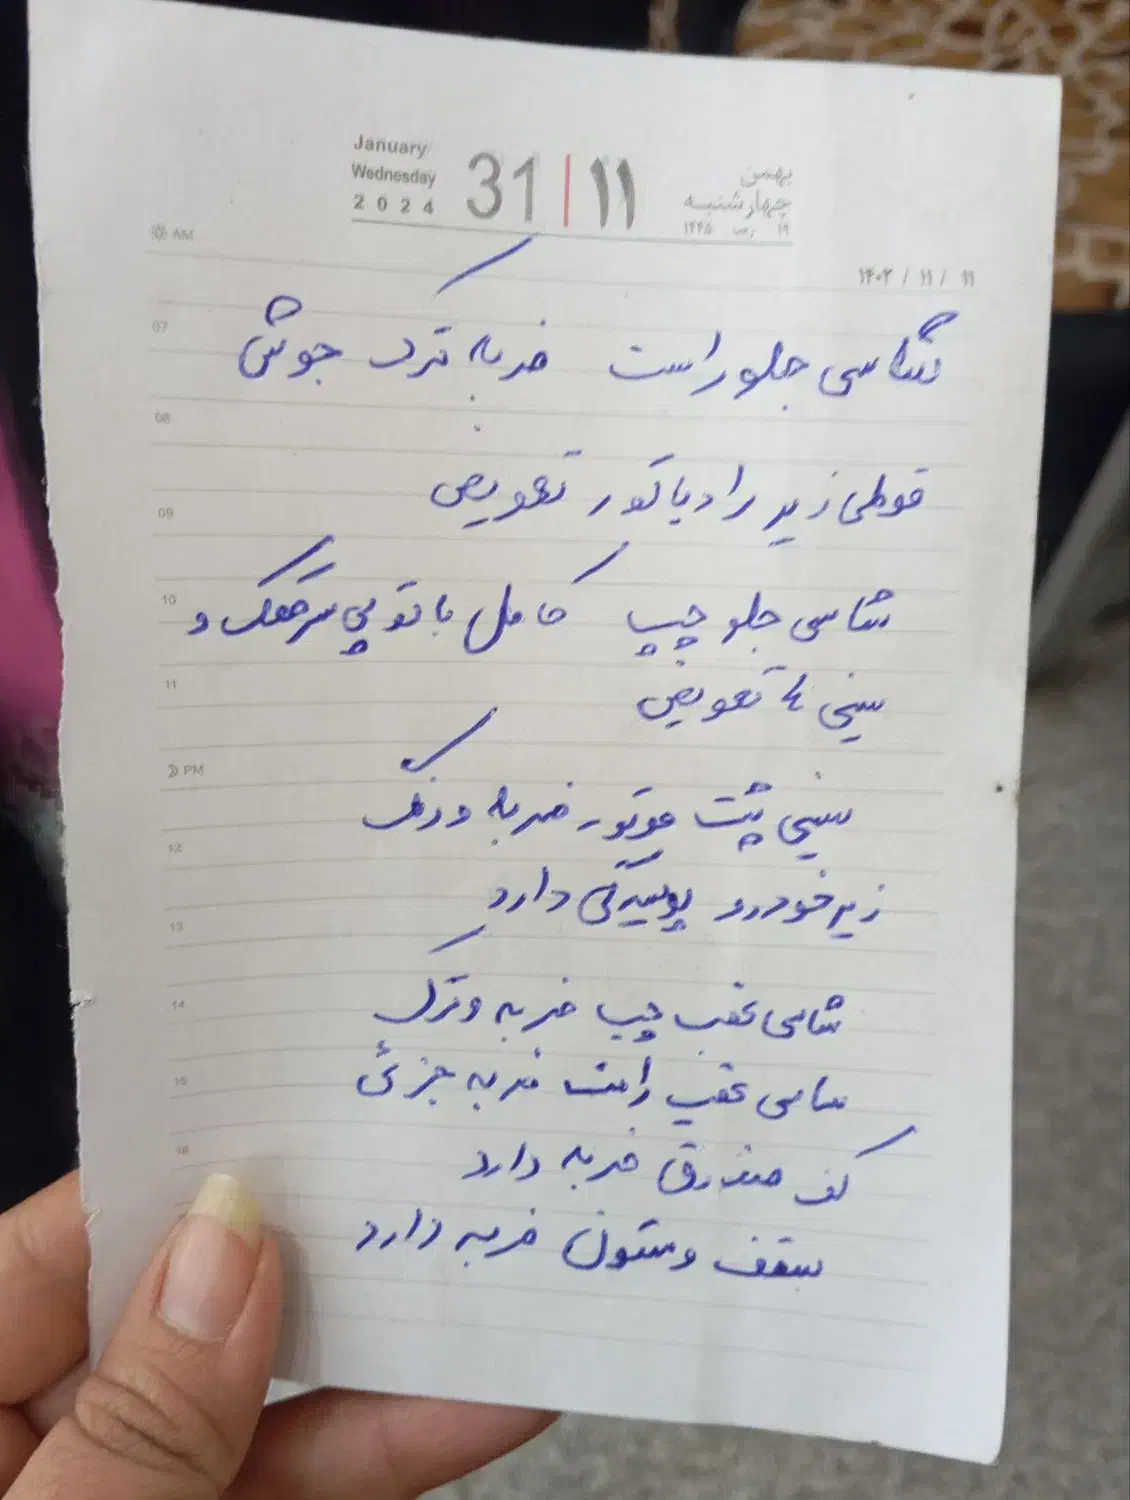 January
Wednesday
2024
31 | ۱۱
بهمن
چهارشنبه
۱۹ رجب ۱۴۴۵
۱۴۰۲ / ۱۱ / ۱۱
AM
07
شاسی جلو راست ضربه ترک جوش
08
قوطی زیر رادیاتور تعویض
09
10
شاسی جلو چپ کامل با توپی سرکمک و
11
سینی تا تعویض
PM
سینی پشت موتور ضربه و رنگ
12
زیر خودرو پوسیدگی دارد
13
شاسی عقب چپ ضربه و ترک
14
شاسی عقب راست ضربه جزئی
15
کف صندوق ضربه دارد
16
سقف و ستون ضربه دارد